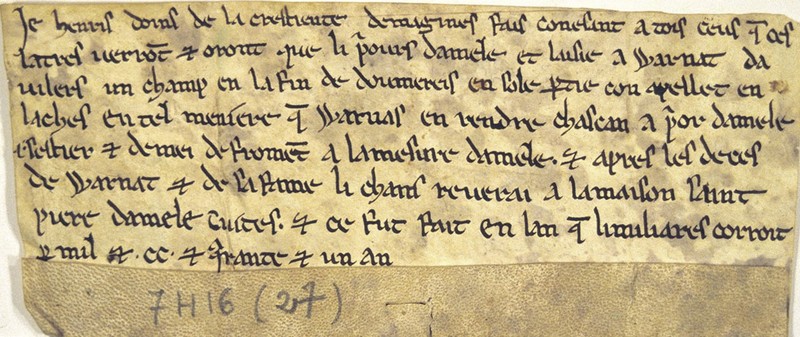 Je henris doins de la crestiente demagines fais conesant a tois ceus q̄ ces
latres verrōt & oront que li p̄ours damele et laisie a Warnat da
vilers un champ en la fin de doumereis en sole ptie con apellet en
laches en tel meniere q̄ Warnas en rendre chascan a p̄or damele
i seltier & demei de fromēt a la mesure damele. & apres les deces
de Warnat & de sa fame li chans reverai a la maison saint
piere damele cuites. & ce fut fait en lan q̄ li miliares corroit
p mil & .cc. & trante & un an
7 H 16 (27)